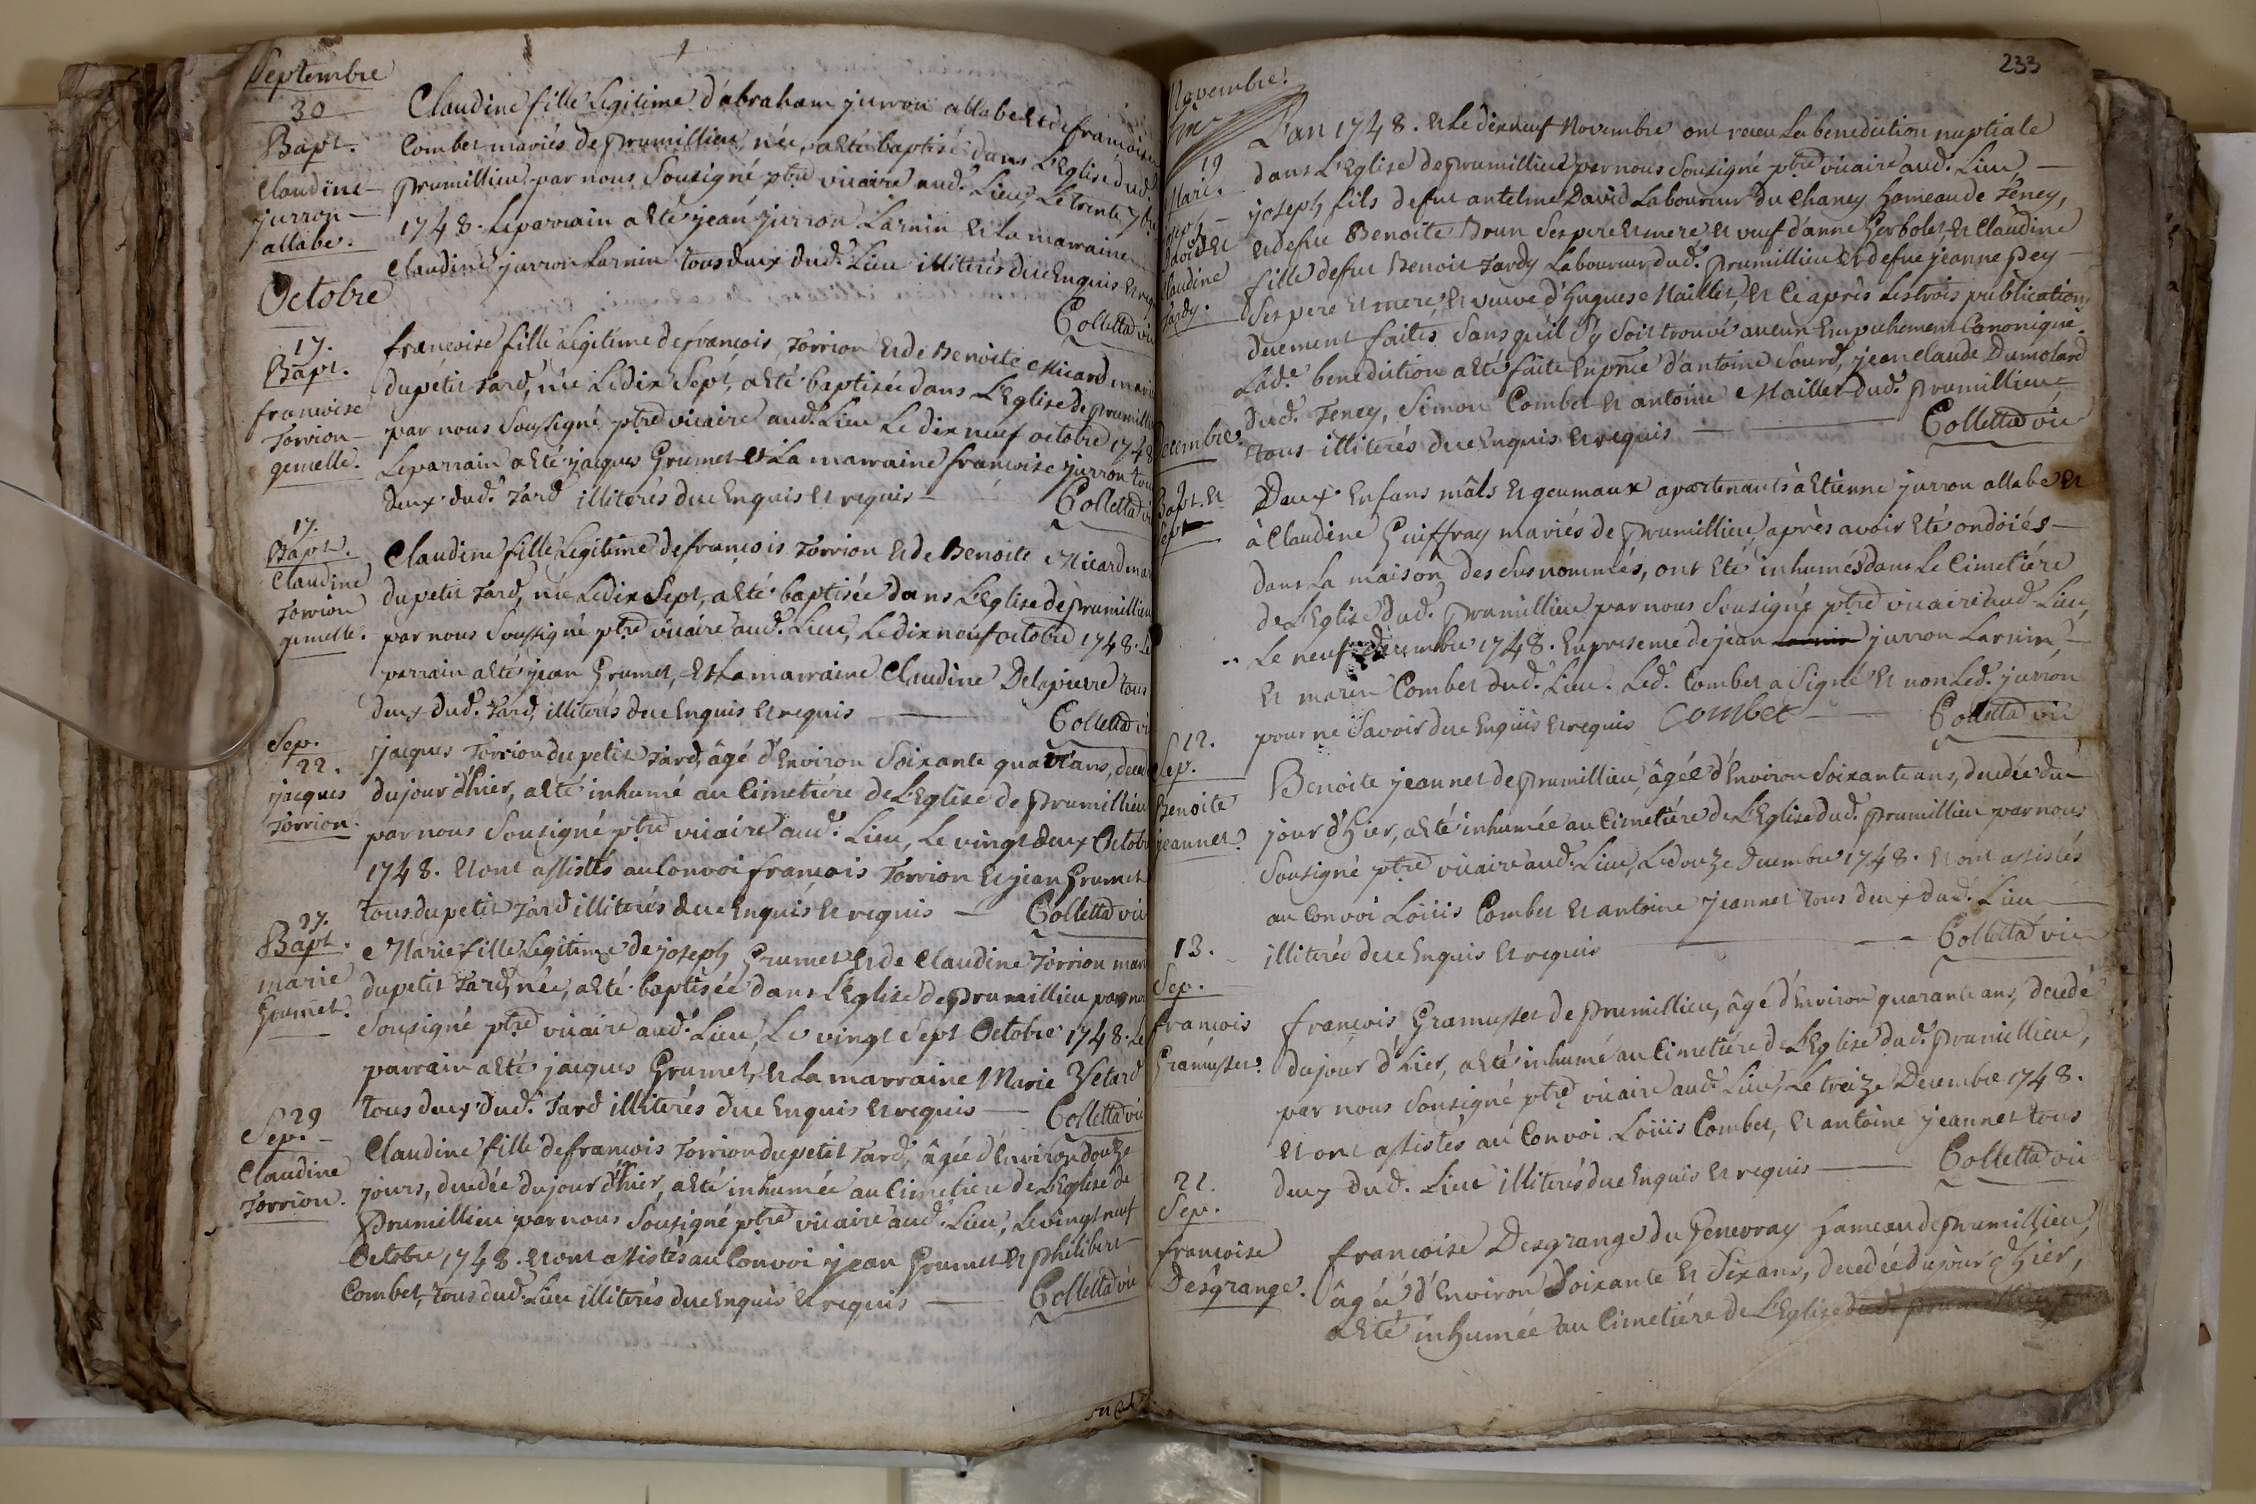 Septembre
30
Bapt.
Claudine
jurron
allabe.
Claudine fille Legitime d'abraham jurron allabe et de francoise
Combet mariés de prumillieu, née, a êté baptisé dans L'Eglise dud.
prumillieu par nous Sousigné ptre vicaire aud. Lieu, Le trente 7bre
1748. Le parrain a êté jean jurron Larnin et La marraine
Claudine jurron Larnin tous deux dud. Lieu illiterés due Enquis et
Colletta
Octobre
17.
Bapt.
francoise
Torrion
gemelle.
francoise fille Legitime de francois Torrion et de Benoite Micard
du petit Tard, née Le dix Sept, a êté baptisée dans L'Eglise de
par nous Soussigné ptre vicaire aud. Lieu Le dix neuf octobre 1748
Le parrain a êté jacques Grumet et La marraine francoise jurron
deux dud. Tard illiterés due Enquis et requis
Colletta
17.
Bapt.
Claudine
Torrion
gemelle.
Claudine fille Legitime de francois Torrion et de Benoite Micard
du petit Tard, née Le dix Sept, a êté baptisée dans L'Eglise de prumillieu
par nous Soussigné ptre vicaire aud. Lieu, Le dix neuf octobre 1748. Le
parrain a êté jean Grumet, et La marraine Claudine Delapierre tous
deux dud. Tard, illiterés due Enquis et requis
Colletta
Sep.
22.
jacques
Torrion.
jacques Torrion du petit Tard, âgé d'Environ Soixante quatr'ans,
du jour d'hier, a êté inhumé au Cimetiére de L'Eglise de prumillieu
par nous Sousigné ptre vicaire aud. Lieu, Le vingt deux Octobre
1748. Et ont assistés au Convoi francois Torrion et jean Grumet
tous du petit Tard illiterés due Enquis et requis
Colletta vic
27.
Bapt.
marie
Grumet.
Marie fille Legitime de joseph Grumet et de Claudine Torrion
du petit Tard, née, a êté baptisée dans L'Eglise de prumillieu par
Sousigné ptre vicaire aud. Lieu, Le vingt Sept Octobre 1748. Le
parrain a êté jacques Grumet, et La marraine Marie
tous deux dud. Tard illiterés due Enquis et requis
Colletta vic
29
Sep.
Claudine
Torrion.
Claudine fille de francois Torrion du petit Tard, âgée d'Environ douze
jours, decedée du jour d'hier, a êté inhumée au Cimetiére de L'Eglise de
prumillieu par nous Sousigné ptre vicaire aud. Lieu, Le vingt neuf
Octobre 1748. Et ont assistés au Convoi jean Grumet et philibert
Combet, tous dud. Lieu illiterés due Enquis et requis
Colletta vic
233
Novembre.
19
Mari.
David et
Claudine
Tardy.
L'an 1748. et Le dixneuf Novembre ont receu La benediction nuptiale
dans L'Eglise de prumillieu par nous Sousigné ptre vicaire aud. Lieu,
joseph fils de feu antelme David Laboureur du Chaney hameau de Teney,
et de feue Benoite Brun Ses pere et mere et veuf d'anne Gerbolet et Claudine
fille de feu Benoit Tardy Laboureur dud. prumillieu et de feue jeanne Pey
Ses pere et mere, et veuve d'hugues Maillet, et Ce après Les trois publications
deuement faites Sans qu'il S'y Soit trouvé aucun Empechement Canonique.
Lad.e benediction a êté faite En pnce d'antoine Sourd, jean claude Dumolard
dud. Teney, Simon Combet et antoine Maillet dud. prumillieu,
tous illiterés due Enquis et requis
Colletta vic
Decembre.
9
Bapt. et
Sep
Deux Enfans mâls et geumaux apartenants à Etienne jurron allabe et
à Claudine Guiffray mariés de prumillieu, après avoir êté ondoiés
dans La maison des Susnommés, ont êté inhumés dans Le Cimetiére
de L'Eglise dud. prumillieu par nous Sousigné ptre vicaire aud. Lieu,
Le neuf decembre 1748. En presence de jean jurron Larnin,
et maren Combet dud. Lieu. Led. Combet a Signé et non Led. jurron
pour ne Savoir due Enquis et requis Combet
Colletta vic
12.
Sep.
Benoite
jeannet.
Benoite jeannet de prumillieu, âgée d'Environ Soixante ans, decedée du
jour d'hier, a êté inhumée au Cimetiére de L'Eglise dud. prumillieu par nous
Sousigné ptre vicaire aud. Lieu, Le douze decembre 1748. Et ont assistés
au Convoi Loüis Combet et antoine jeannet tous deux dud. Lieu
illiterés due Enquis et requis
Colletta vic
13.
Sep.
francois
Gramusset.
francois Gramusset de prumillieu, âgé d'Environ quarante ans, decedé
du jour d'hier, a êté inhumé au Cimetiére de L'Eglise dud. prumillieu,
par nous Sousigné ptre vicaire aud. Lieu, Le treize Decembre 1748.
Et ont assistés au Convoi Loüis Combet, et antoine jeannet tous
deux dud. Lieu illiterés due Enquis et requis
Colletta vic
21.
Sep.
francoise
Desgrange.
francoise Desgrange du Genevray hameau de prumillieu,
âgée d'Environ Soixante et Six ans, decedée du jour d'hier,
a êté inhumée au Cimetiére de L'Eglise dud. prumillieu